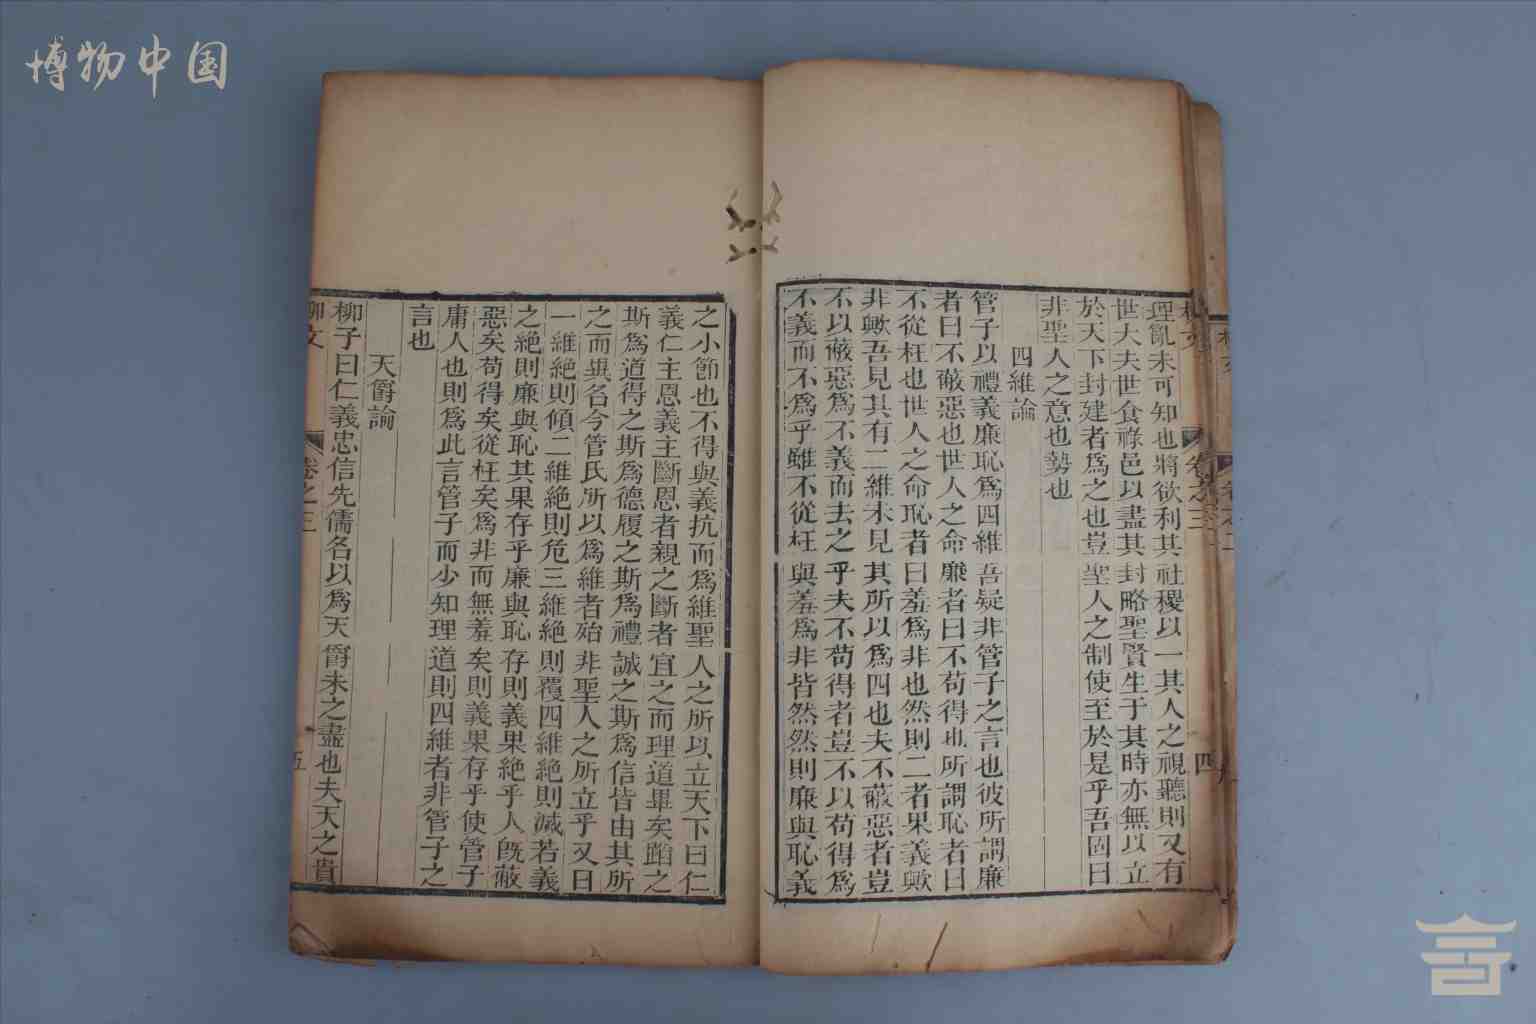 博物中国
柳文 卷之三 四
理亂未可知也將欲利其社稷以一其人之視聽則又有
世大夫世食祿邑以盡其封略聖賢生于其時亦無以立
於天下封建者爲之也豈聖人之制使至於是乎吾固曰
非聖人之意也勢也
四維論
管子以禮義廉恥爲四維吾疑非管子之言也彼所謂廉
者曰不蔽惡也世人之命廉者曰不苟得也所謂恥者曰
不從枉也世人之命恥者曰羞爲非也然則二者果義歟
非歟吾見其有二維未見其所以爲四也夫不蔽惡者豈
不以蔽惡爲不義而去之乎夫不苟得者豈不以苟得爲
不義而不爲乎雖不從枉與羞爲非皆然然則廉與恥義
之小節也不得與義抗而爲維聖人之所以立天下曰仁
義仁主恩義主斷恩者親之斷者宜之而理道畢矣蹈之
斯爲道得之斯爲德履之斯爲禮誠之斯爲信皆由其所
之而異名今管氏所以爲維者殆非聖人之所立乎又曰
一維絕則傾二維絕則危三維絕則覆四維絕則滅若義
之絕則廉與恥其果存乎廉與恥存則義果絕乎人既蔽
惡矣苟得矣從枉矣爲非而無羞矣則義果存乎使管子
庸人也則爲此言管子而少知理道則四維者非管子之
言也
天爵論
柳子曰仁義忠信先儒名以爲天爵未之盡也夫天之貴
柳文 卷之三 五